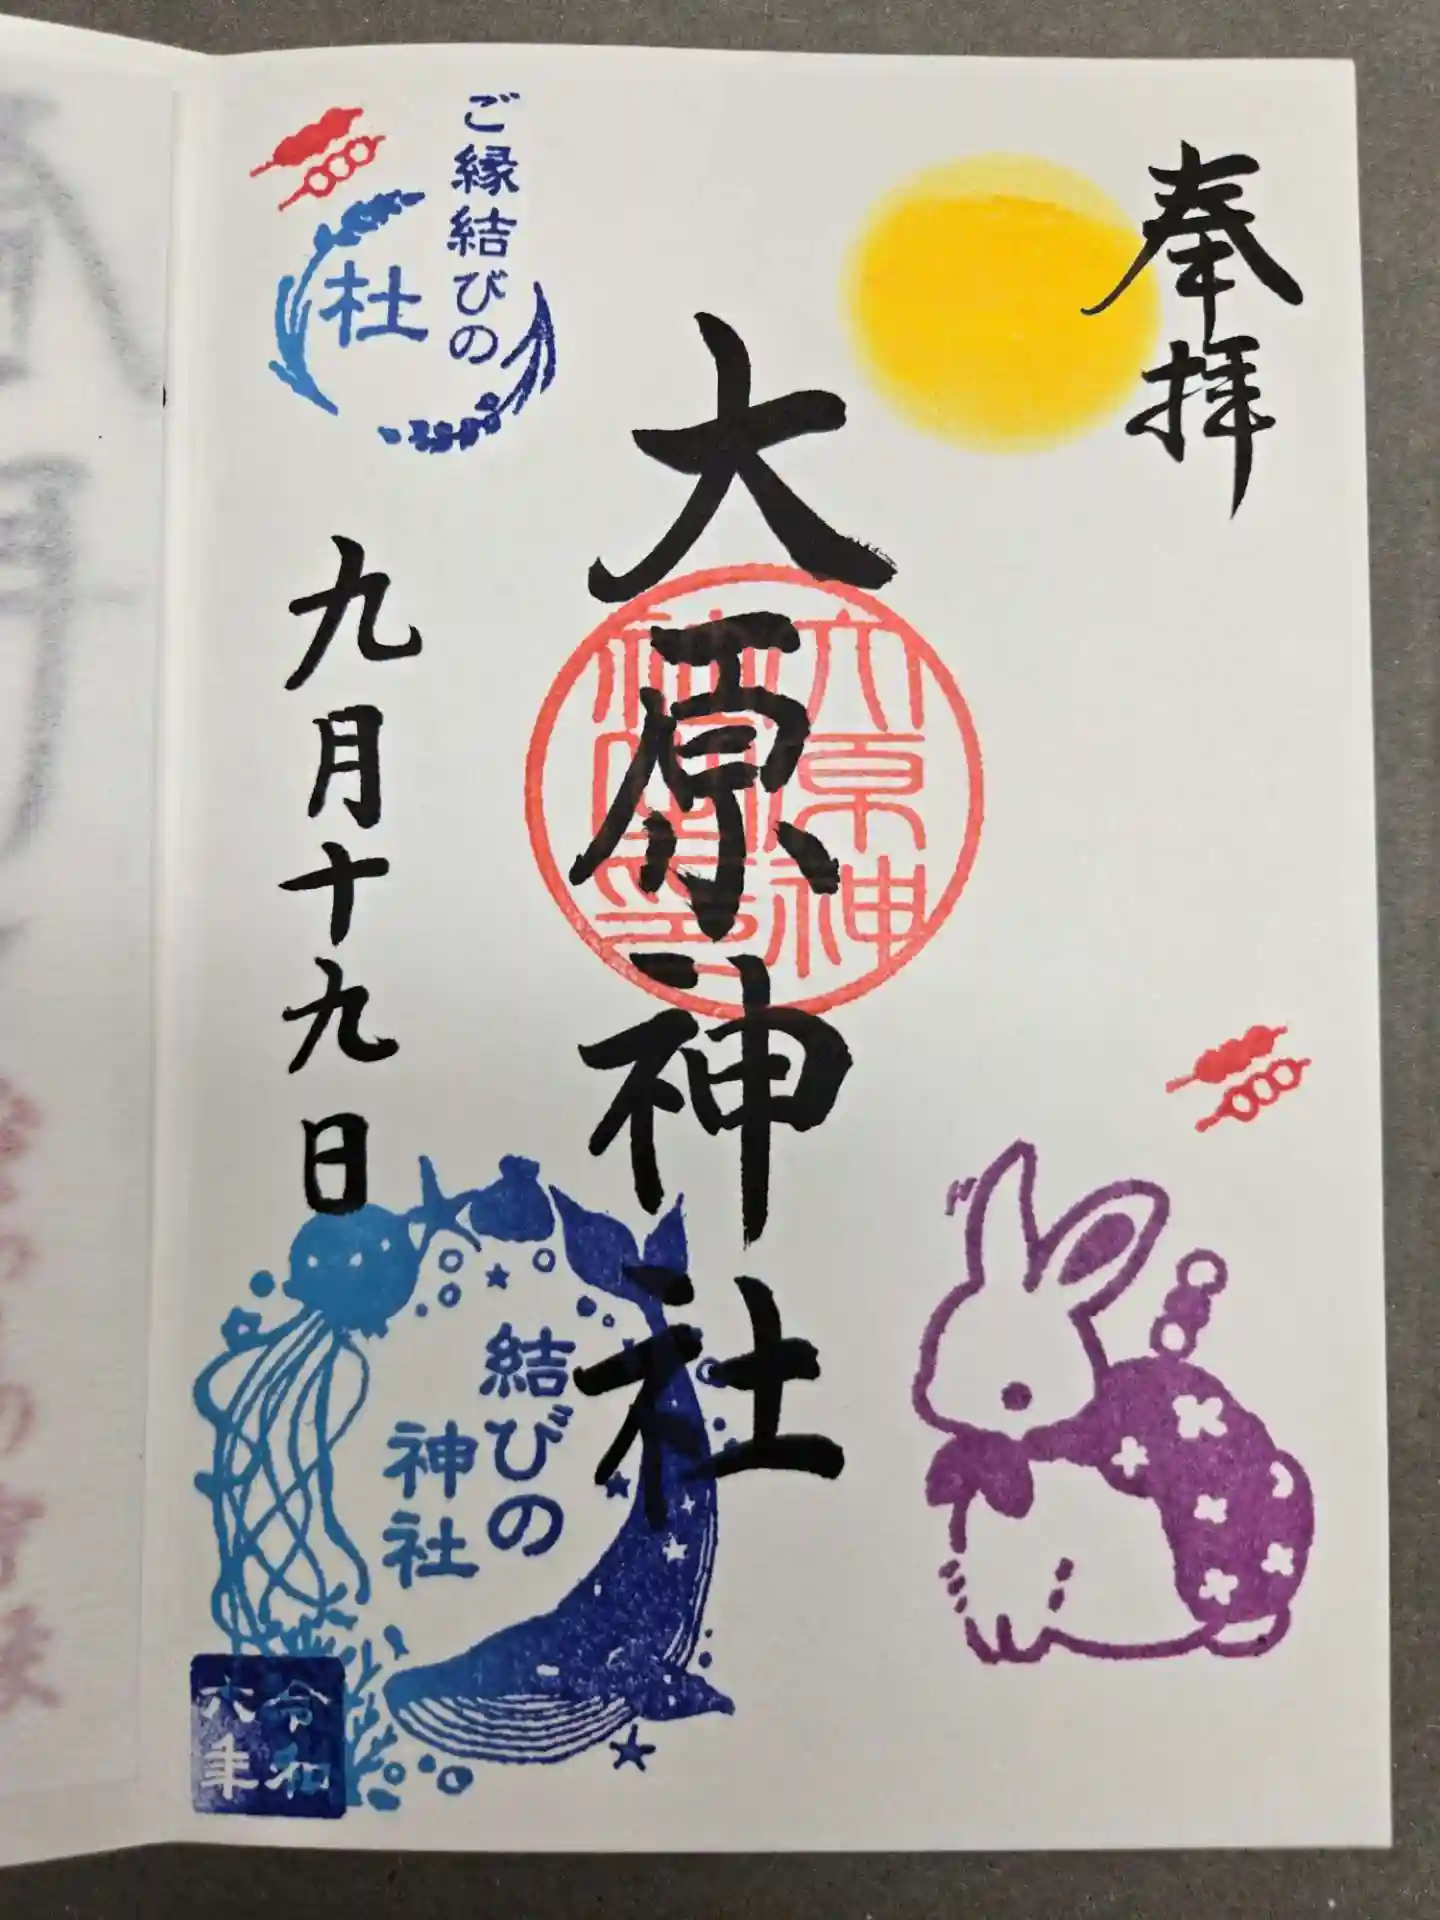 奉拝
大原神社
大原神
社
印
ご縁結びの
杜
九月十九日
結びの
神社
令和
六年